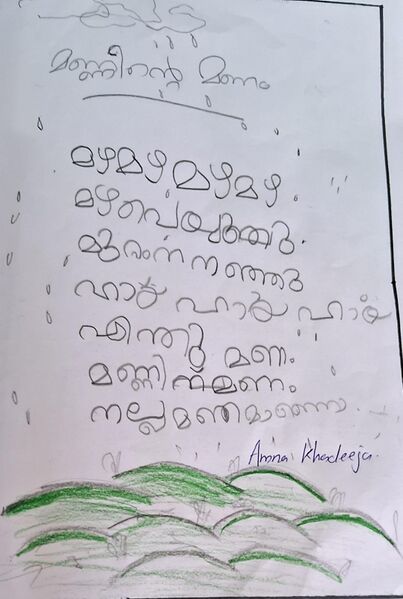 മണ്ണീന്റെ മണം
മഴമഴ മഴമഴ
മഴപെയ്തു
മുറ്റം നനഞ്ഞു
ഹായ് ഹായ് ഹായ്
എന്തു മണം
മണ്ണിന്മണം
നല്ല മണമാണേ
Amna Khadeeja.